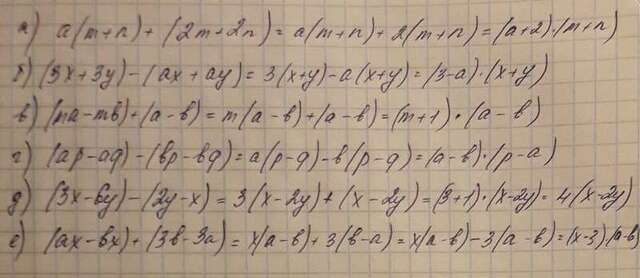 а) a(m+n)+(2m+2n)=a(m+n)+2(m+n)=(a+2)·(m+n)
б) (3x+3y)-(ax+ay)=3(x+y)-a(x+y)=(3-a)·(x+y)
в) (ma-mb)+(a-b)=m(a-b)+(a-b)=(m+1)·(a-b)
г) (ap-aq)-(bp-bq)=a(p-q)-b(p-q)=(a-b)·(p-q)
д) (3x-6y)-(2y-x)=3(x-2y)+(x-2y)=(3+1)·(x-2y)=4(x-2y)
е) (ax-bx)+(3b-3a)=x(a-b)+3(b-a)=x(a-b)-3(a-b)=(x-3)(a-b)